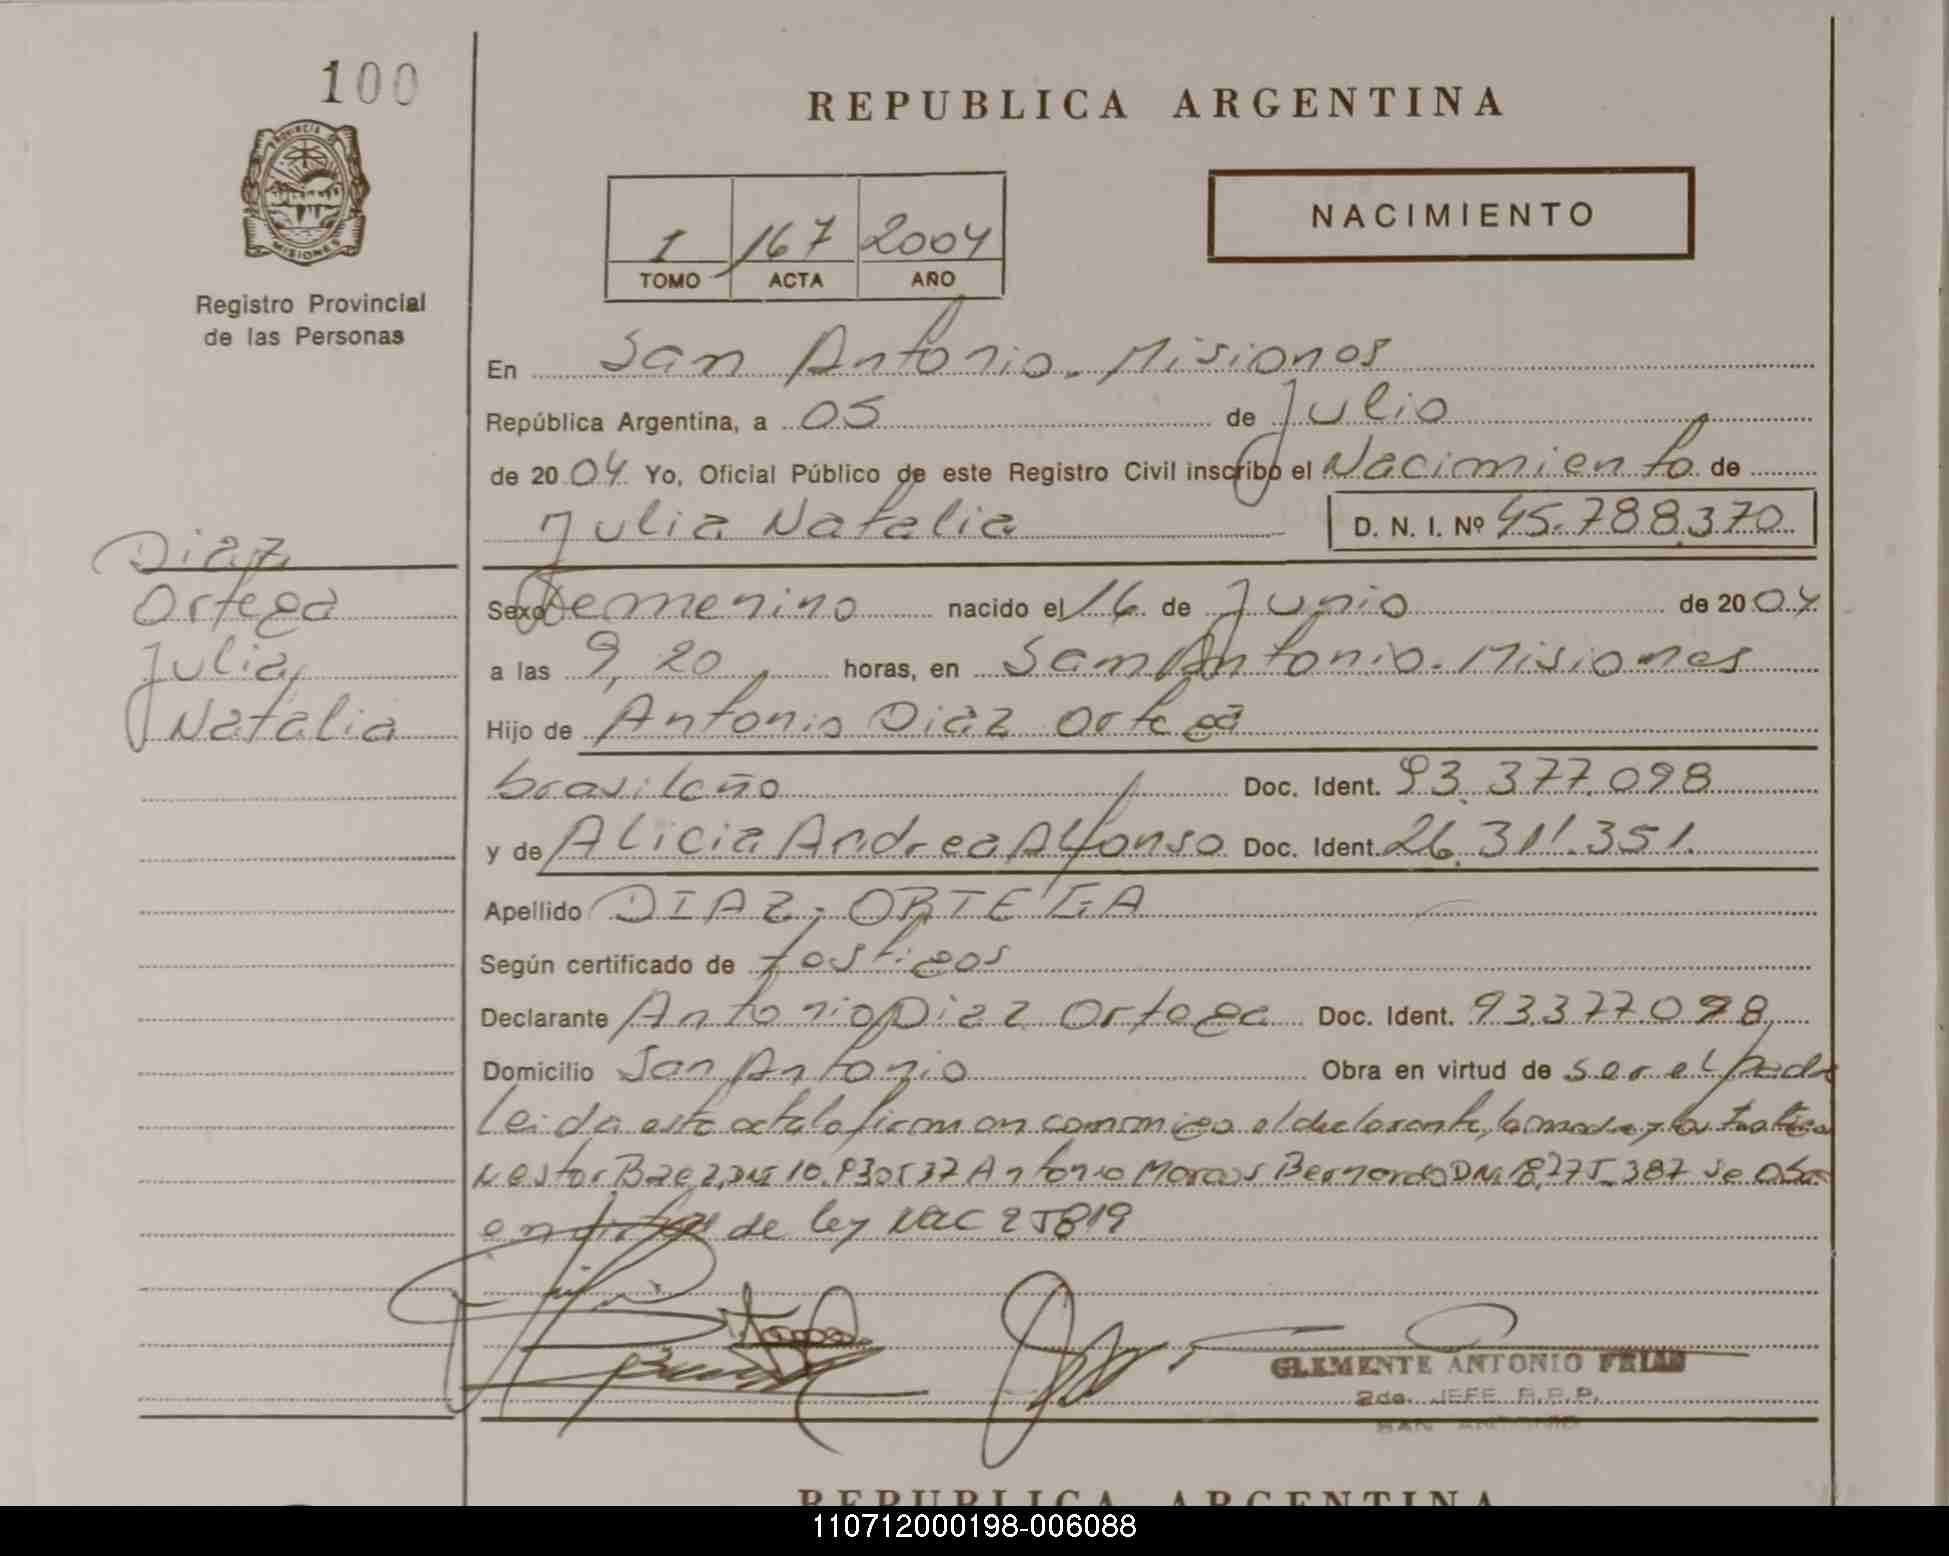 100
PROVINCIA DE
MISIONES
Registro Provincial
de las Personas
REPUBLICA ARGENTINA
1 167 2004
TOMO ACTA AÑO
NACIMIENTO
En San Antonio. Misiones
República Argentina, a 05 de Julio
de 2004 Yo, Oficial Público de este Registro Civil inscribo el Nacimiento de
Julia Natalia D. N. I. Nº 45.788.370
Diaz
Ortega
Julia
Natalia
Sexo Femenino nacido el 16 de Junio de 2004
a las 9,20 horas, en San Antonio. Misiones
Hijo de Antonio Diaz Ortega
brasileño Doc. Ident. 93.377.098
y de Alicia Andrea Alfonso Doc. Ident. 26.311.351.
Apellido DIAZ, ORTEGA
Según certificado de testigos
Declarante Antonio Diaz Ortega Doc. Ident. 93377098
Domicilio San Antonio Obra en virtud de ser el padre
Leida esta acta la firman conmigo el declarante, la madre y los testigos
Nestor Baez, DNI 10.930537 Antonio Marcos Bernardo DNI 18.275.387 se obra
en de ley Nac 25819
CLEMENTE ANTONIO
2do. JEFE R.P.P.
SAN ANTONIO
REPUBLICA ARGENTINA
110712000198-006088